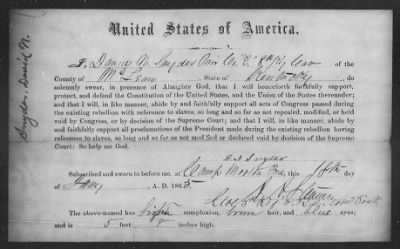 Snyder, David N.
United States of America.
I, David N. Snyder Pvt Co. E. 8 Ky Cav of the
County of McLean, State of Kentucky, do
solemnly swear, in presence of Almighty God, that I will henceforth faithfully support,
protect, and defend the Constitution of the United States, and the Union of the States thereunder;
and that I will, in like manner, abide by and faithfully support all acts of Congress passed during
the existing rebellion with reference to slaves, so long and so far as not repealed, modified, or held
void by Congress, or by decision of the Supreme Court; and that I will, in like manner, abide by
and faithfully support all proclamations of the President made during the existing rebellion having
reference to slaves, so long and so far as not modified or declared void by decision of the Supreme
Court: So help me God.
D N Snyder
Subscribed and sworn to before me, at Camp Morton Ind, this 18th
day of Jany A. D. 1865.
The above-named has light complexion, brown hair, and blue eyes;
and is 5 feet 9 inches high.